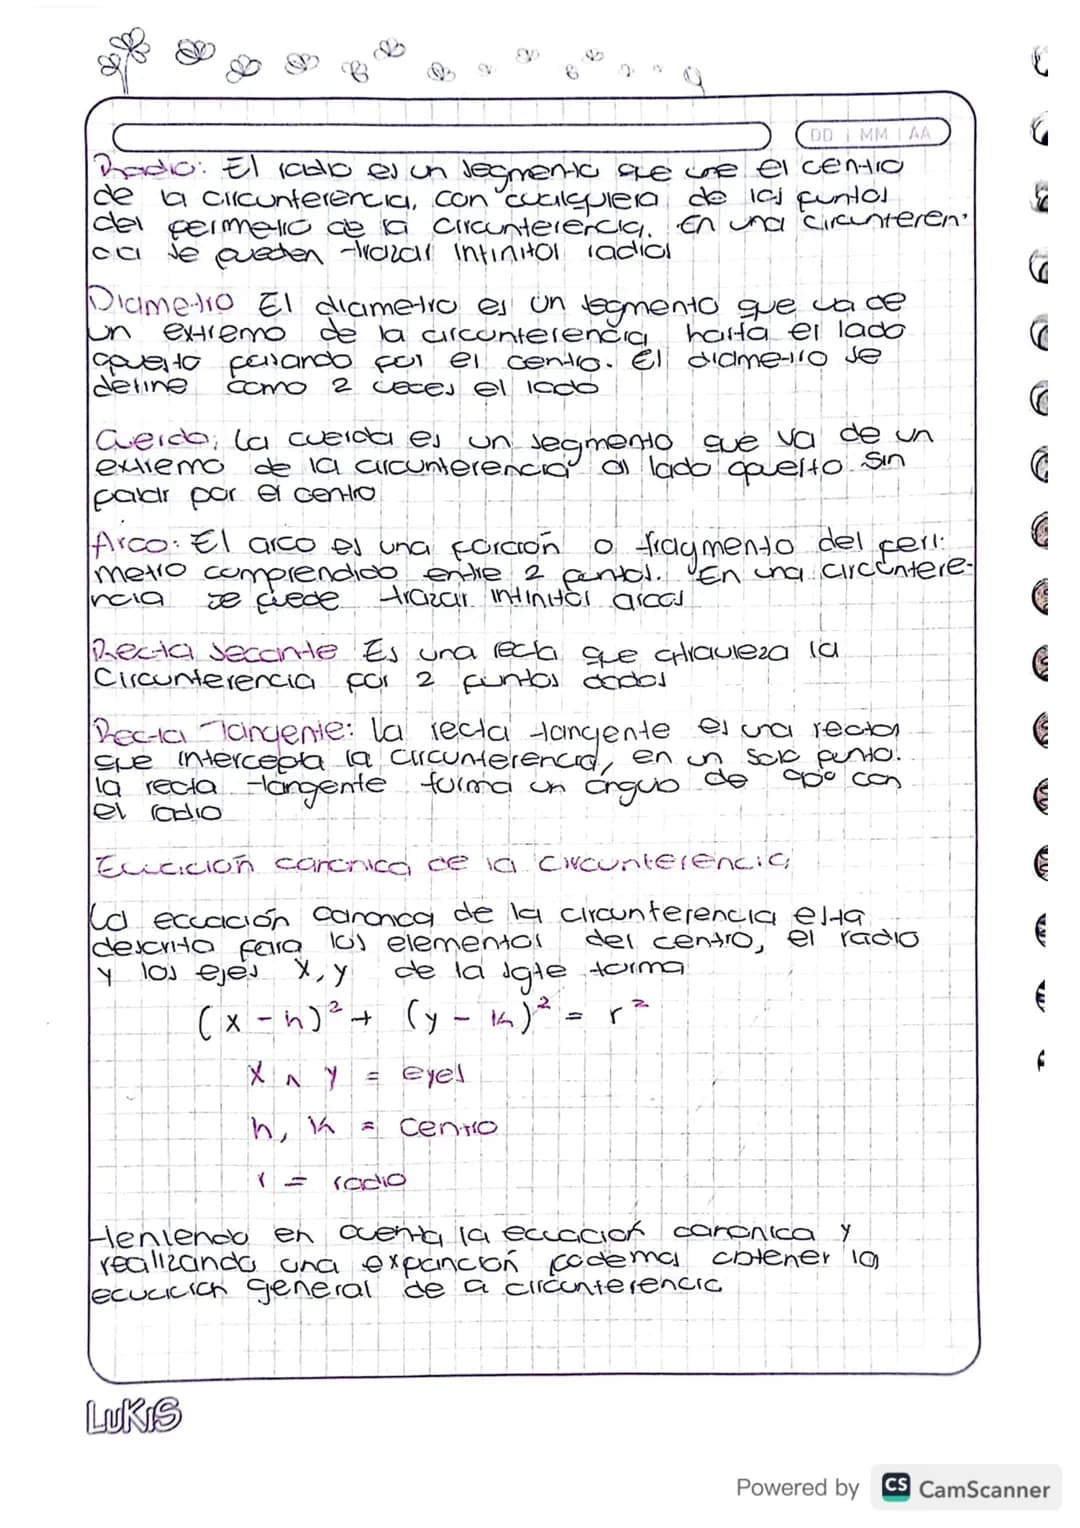 DD | MM | AA
Radio: El radio es un segmento que une el centro
de la circunferencia, con cualquiera de los puntos
del perimetro de la circunferencia. En una circunferen-
cia se pueden trazar infinitos radios
Diametro El diametro es un segmento que va de
un extremo de la circunferencia hasta el lado
opuesto pasando por el centro. El diametro se
define como 2 veces el lado
Cuerda: La cuerda es un segmento que va de un
extremo de la circunferencia al lado opuesto sin
pasar por el centro
Arco: El arco es una porción o fragmento del perí-
metro comprendido entre 2 puntos. En una circunfere-
ncia se puede trazar infinitos arcos
Recta secante Es una recta que atravieza la
Circunferencia por 2 puntos dados
Recta Tangente: la recta tangente es una recta
que intercepta la circunferencia, en un solo punto.
la recta tangente forma un anguo de 90° con
el radio
Ecuación canonica de la circunferencia
La ecuación canonica de la circunferencia esta
descrita para los elementos del centro, el radio
y los ejes x, y de la sgte forma
(x - h)² + (y - k)² = r²
x ∧ y = eyes
h, k = centro
r = radio
teniendo en cuenta la ecuación canonica y
realizando una expanción podemos obtener la
ecuación general de a circunferencia
LUKIS
Powered by CS CamScanner